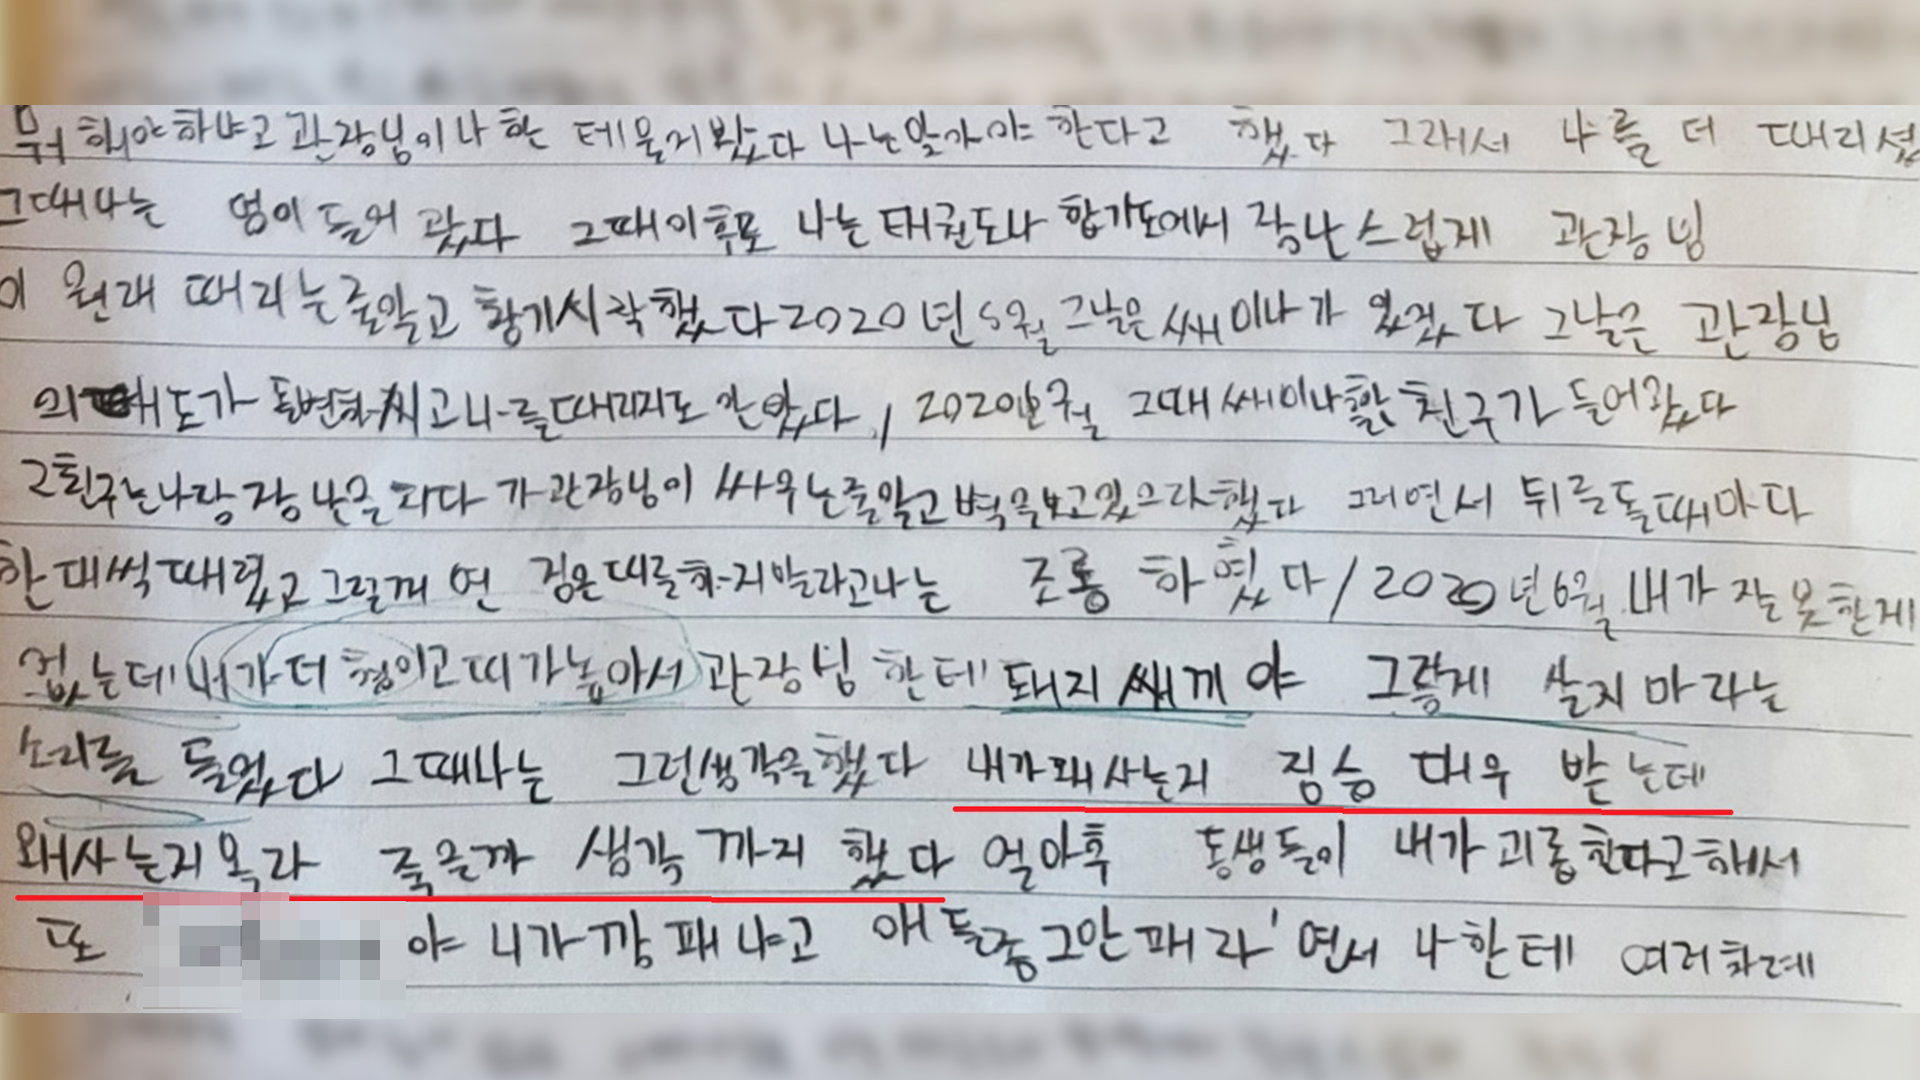 뭐 해야하냐고 관장님이 나 한 테 물어봤다 나는 맞아야 한다고 했다 그래서 나를 더 때리셨
그때나는 멍이 들어 갔다 그때이후로 나는 태권도나 합기도에서 장난스럽게 관장님
이 원래 때리는줄알고 참기시작했다 2020년 5월 그날은 쎄미나가 있었다 그날은 관장님
의 태도가 돌변하시고 나를때리지도 안았다 / 2020년 그때 쎄미나 친구가 들어왔다
그친구는 나랑 장난을 치다 가 관장님이 싸우는줄알고 벽을보고있으라했다 그러면서 뒤를돌때마다
한대씩때렸고 그럴꺼 면 검은띠를하지말라고나는 조롱 하였다 / 2020년 6월 내가 잘못한게
없는데 내가 더 형이고 띠가높아서 관장님 한테 돼지 쌔끼 야 그렇게 살지마라는
소리를 들었다 그때나는 그런생각을했다 내가왜사는지 짐승 대우 받는데
왜사는지 몰라 죽을까 생각 까지 했다 얼마후 동생들이 내가 괴롭힌다고해서
또 야 니가깡패냐고 애들좀그만패라'면서 나한테 여러차례